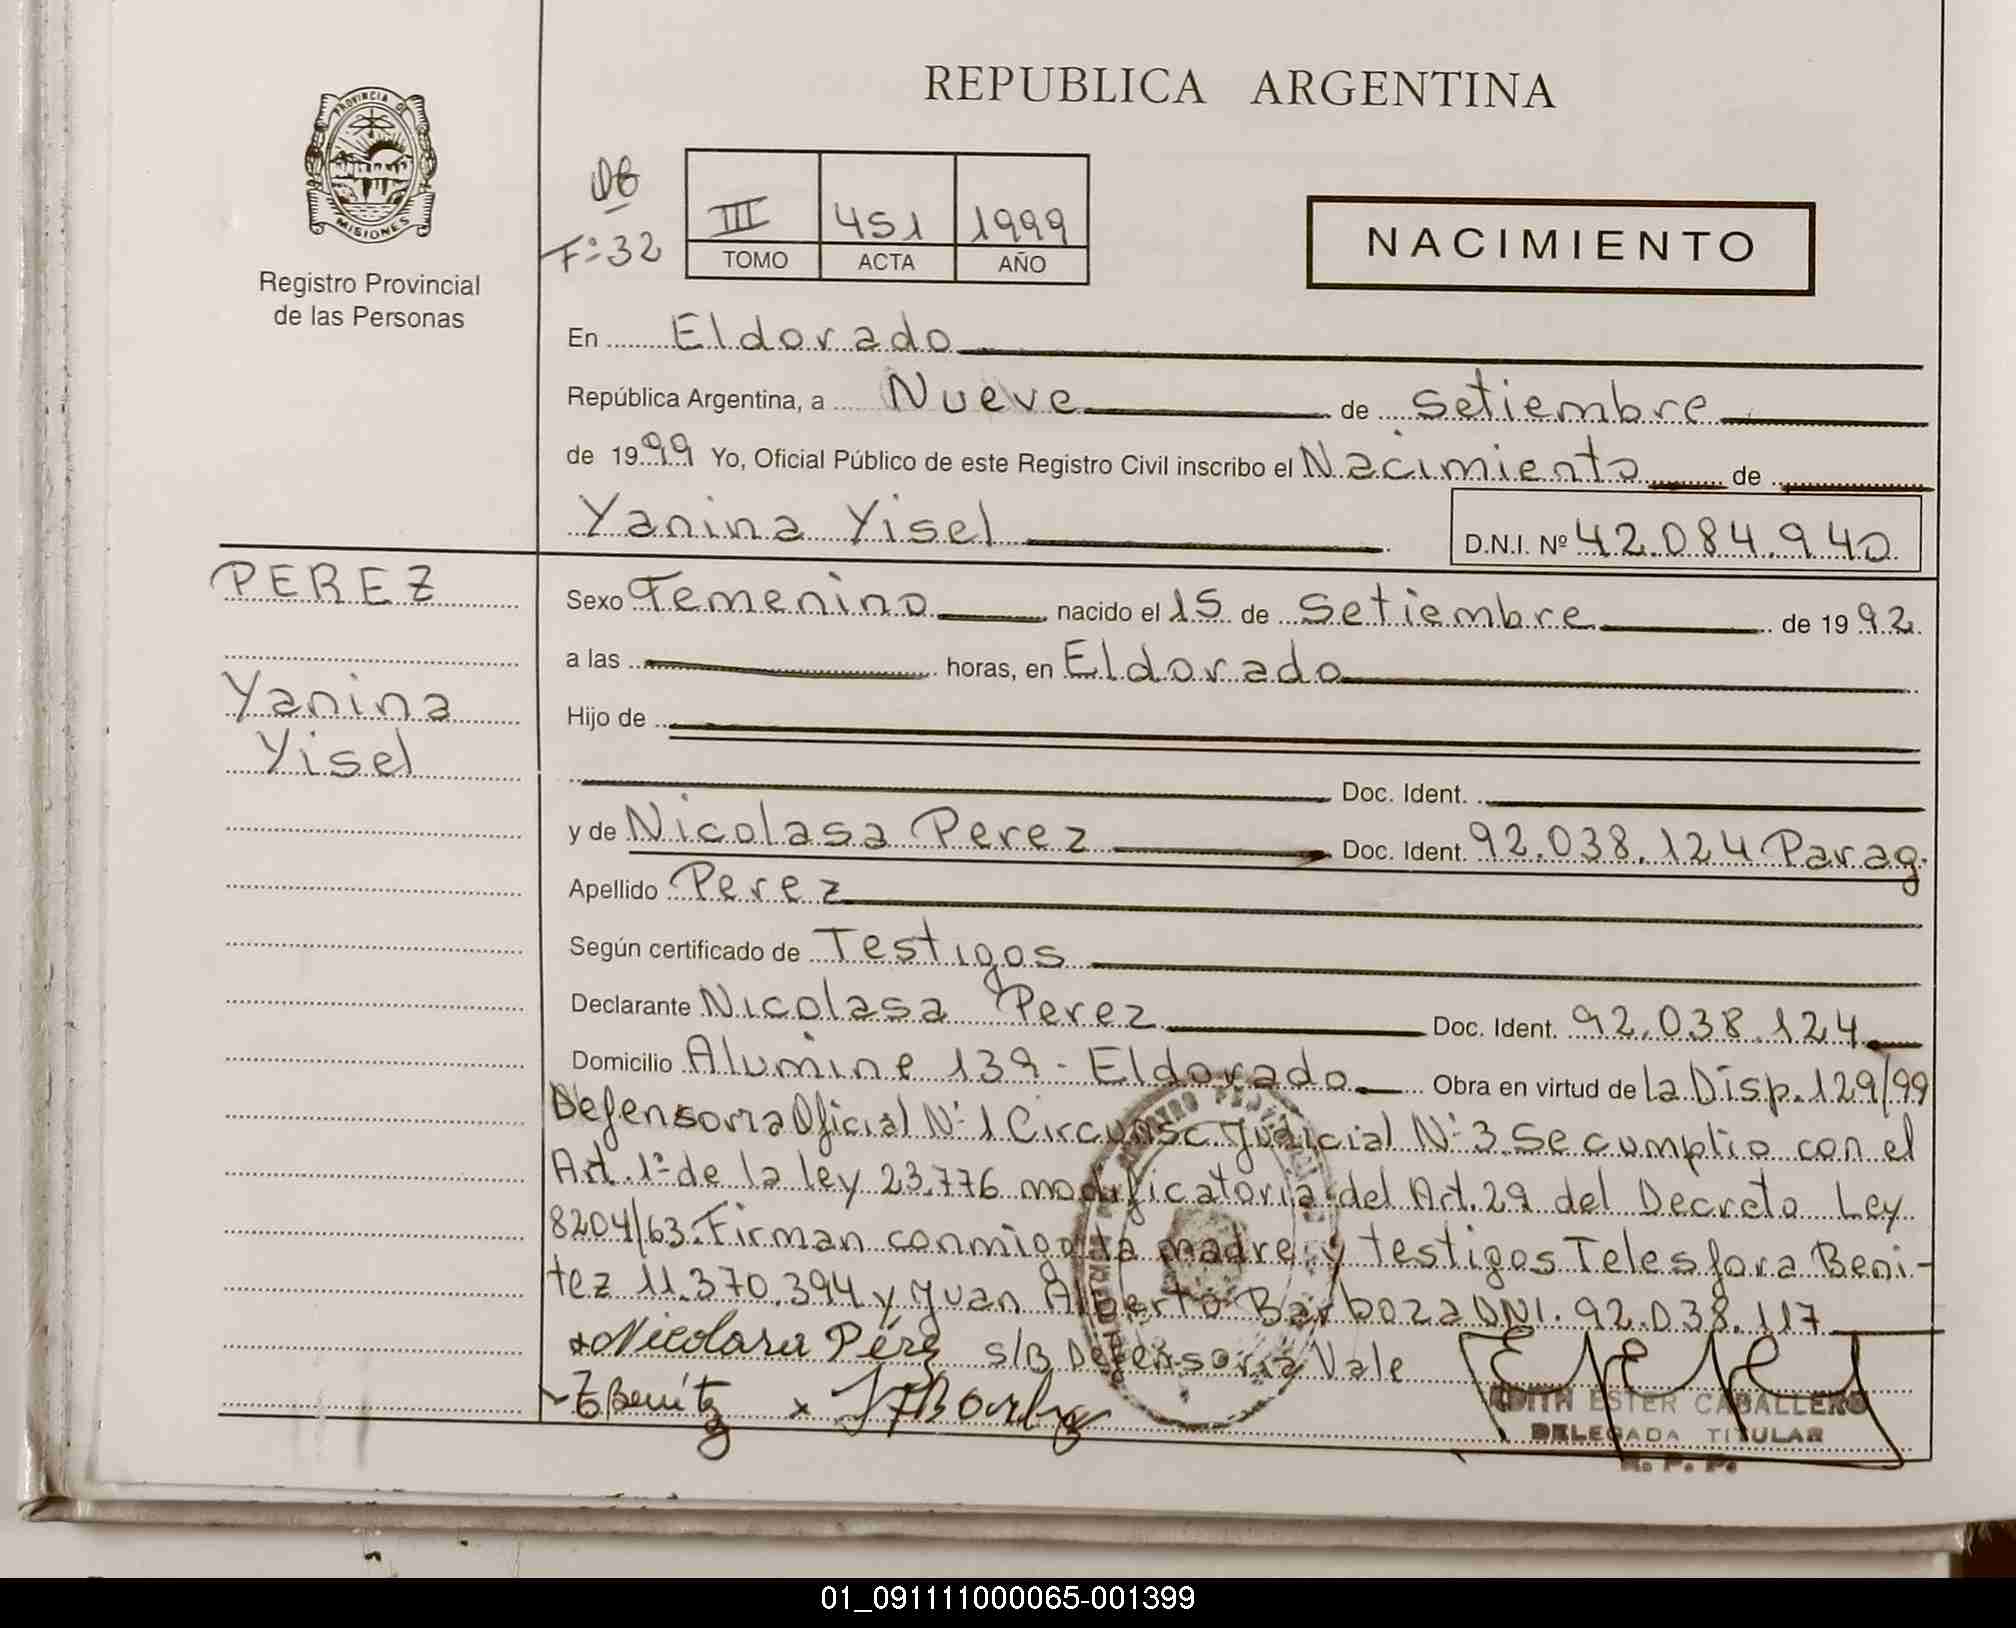 REPUBLICA ARGENTINA
PROVINCIA DE
MISIONES
Registro Provincial
de las Personas
F:32
III 451 1999
TOMO ACTA AÑO
NACIMIENTO
En Eldorado
República Argentina, a Nueve de Setiembre
de 1999 Yo, Oficial Público de este Registro Civil inscribo el Nacimiento de
Yanina Yisel D.N.I. Nº 42.084.940
PEREZ
Yanina
Yisel
Sexo Femenino nacido el 15 de Setiembre de 1992
a las horas, en Eldorado
Hijo de
Doc. Ident.
y de Nicolasa Perez Doc. Ident. 92.038.124 Parag.
Apellido Perez
Según certificado de Testigos
Declarante Nicolasa Perez Doc. Ident. 92.038.124
Domicilio Alumine 139 - Eldorado Obra en virtud de la Disp. 129/99
Defensoria Oficial Nº 1 Circunsc. Judicial Nº 3. Se cumplio con el
Art. 1º de la ley 23.776 modificatoria del Art. 29 del Decreto Ley
8204/63. Firman conmigo la madre y testigos Telesfora Beni-
tez 11.370.394 y Juan Alberto Barboza DNI. 92.038.117
Nicolasa Pérez s/B Defensoria Vale
EDITH ESTER CABALLERO
DELEGADA TITULAR
R. P. P.
01_091111000065-001399